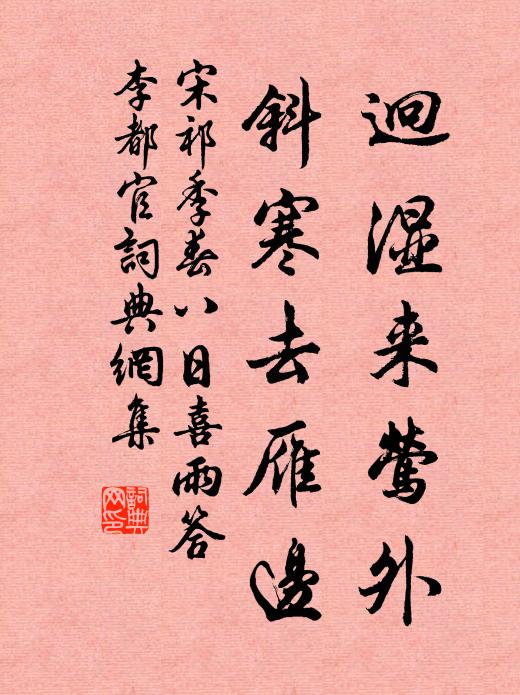 迥濕来鶯外
斜寒去雁邊
宋祁季春八日喜雨答
李都官詞典網集
詞典网印